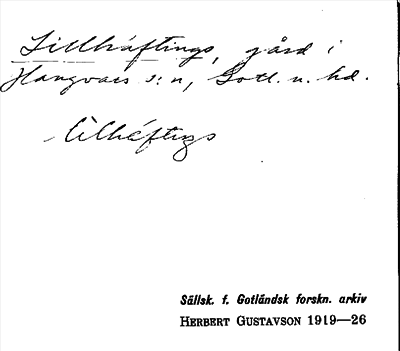 Lillhäftings, gård i
Hangvars s:n, Gotl. n. hd.
Sällsk. f. Gotländsk forskn. arkiv
HERBERT GUSTAVSON 1919—26